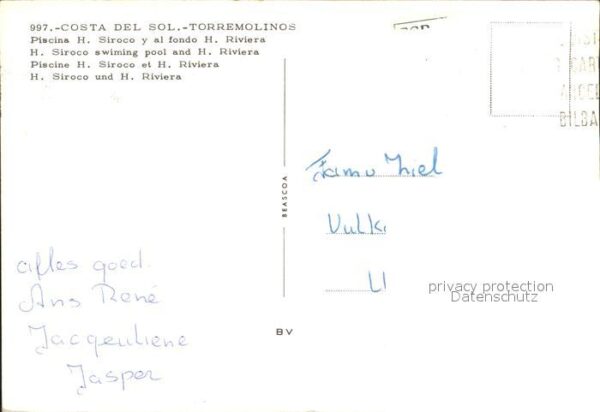 997.-COSTA DEL SOL.-TORREMOLINOS
Piscina H. Siroco y al fondo H. Riviera
H. Siroco swiming pool and H. Riviera
Piscine H. Siroco et H. Riviera
H. Siroco und H. Riviera
BEASCOA
alles goed.
Ans René
Jacqeuliene
Jasper
BV
Vulk
privacy protection
Datenschutz
BILBA